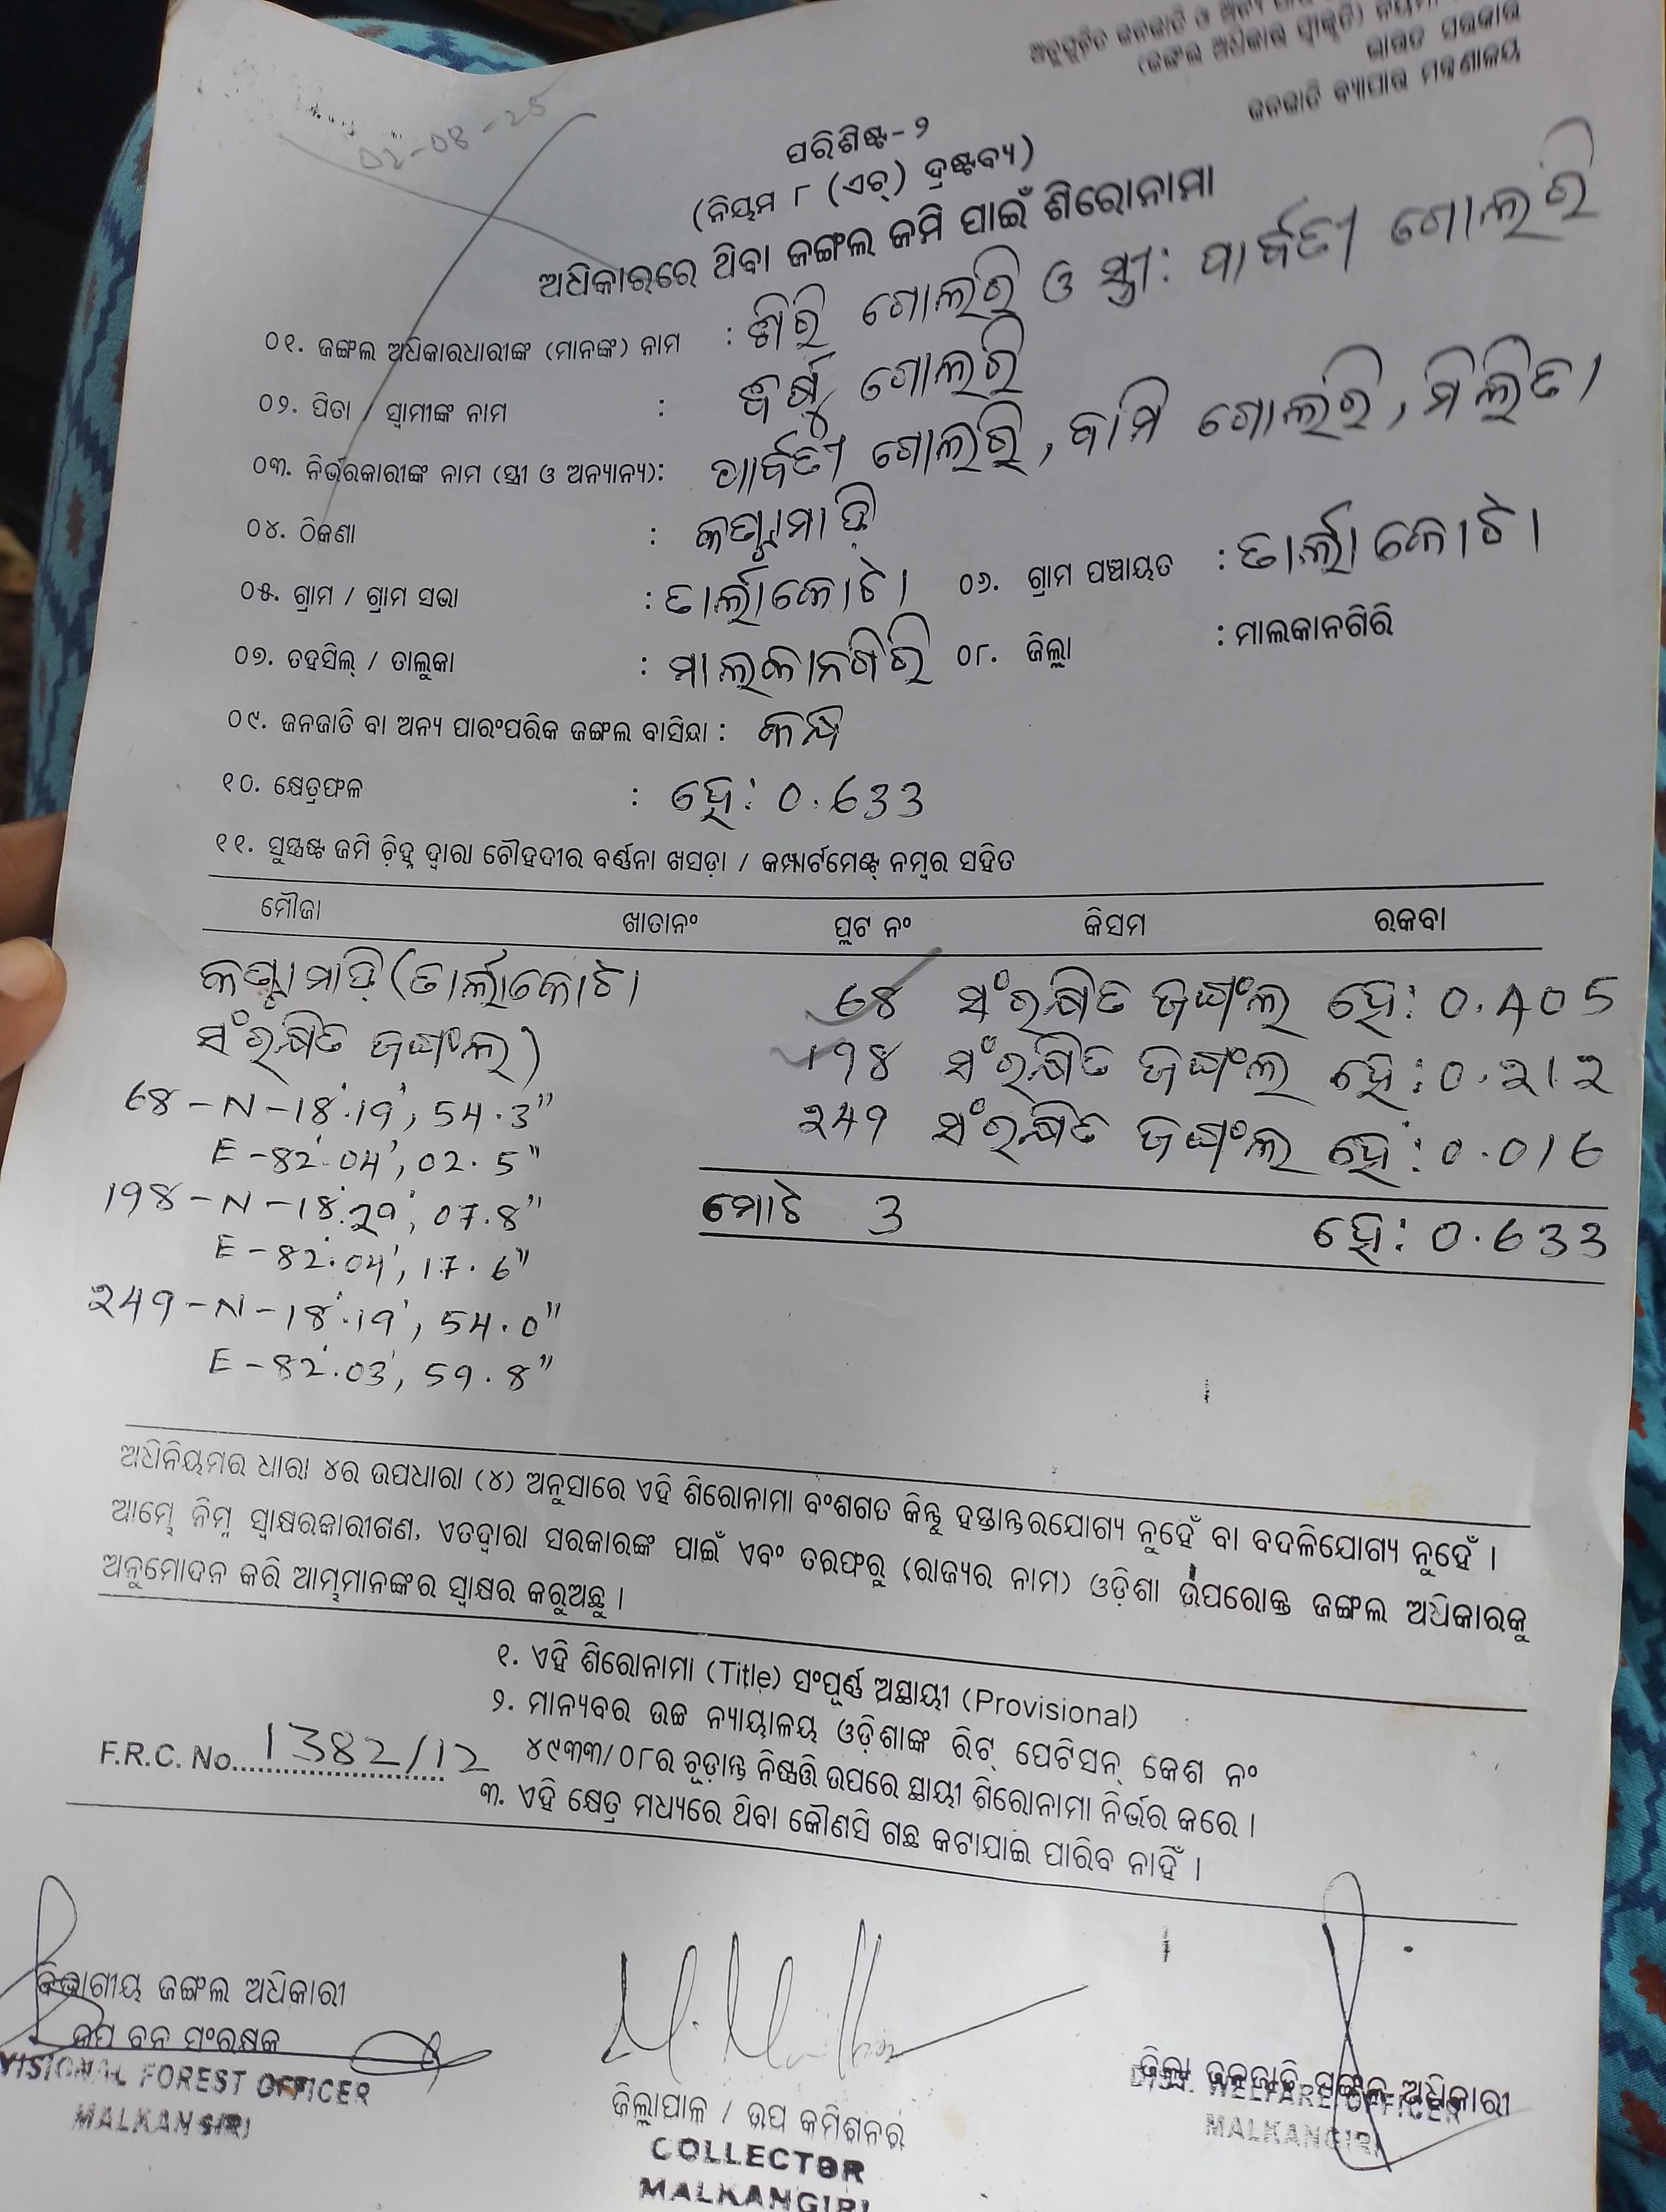 ଅନୁସୂଚିତ ଜନଜାତି ଓ ଅନ୍ୟ
(ଜଙ୍ଗଲ ଅଧିକାର ସ୍ୱୀକୃତି) ନିୟମ
ଭାରତ ସରକାର
ଜନଜାତି ବ୍ୟାପାର ମନ୍ତ୍ରଣାଳୟ
02-08-25
ପରିଶିଷ୍ଟ-୨
(ନିୟମ ୮ (ଏଚ୍) ଦ୍ରଷ୍ଟବ୍ୟ)
ଅଧିକାରରେ ଥିବା ଜଙ୍ଗଲ ଜମି ପାଇଁ ଶିରୋନାମା
୦୧. ଜଙ୍ଗଲ ଅଧିକାରଧାରୀଙ୍କ (ମାନଙ୍କ) ନାମ : ଶିରି ଗୋଲରି ଓ ସ୍ତ୍ରୀ: ପାର୍ବତୀ ଗୋଲରି
୦୨. ପିତା / ସ୍ୱାମୀଙ୍କ ନାମ : ଗୋଲରି
୦୩. ନିର୍ଭରକାରୀଙ୍କ ନାମ (ସ୍ତ୍ରୀ ଓ ଅନ୍ୟାନ୍ୟ): ପାର୍ବତୀ ଗୋଲରି, ବାମି ଗୋଲରି, ମିଲିତା
୦୪. ଠିକଣା :
୦୫. ଗ୍ରାମ / ଗ୍ରାମ ସଭା : ତାର୍ଲାକୋଟା ୦୬. ଗ୍ରାମ ପଞ୍ଚାୟତ : ତାର୍ଲାକୋଟା
୦୭. ତହସିଲ୍ / ତାଲୁକା : ମାଲକାନଗିରି ୦୮. ଜିଲ୍ଲା : ମାଲକାନଗିରି
୦୯. ଜନଜାତି ବା ଅନ୍ୟ ପାରଂପରିକ ଜଙ୍ଗଲ ବାସିନ୍ଦା : କନ୍ଧ
୧୦. କ୍ଷେତ୍ରଫଳ : ହେ: 0.633
୧୧. ସୁସ୍ପଷ୍ଟ ଜମି ଚ଼ିହ୍ନ ଦ୍ୱାରା ଚୌହଦୀର ବର୍ଣ୍ଣନା ଖସଡ଼ା / କମ୍ପାର୍ଟମେଣ୍ଟ୍ ନମ୍ବର ସହିତ
ମୌଜା ଖାତାନଂ ପ୍ଲଟ ନଂ କିସମ ରକବା
(ତାର୍ଲାକୋଟା 68 ସଂରକ୍ଷିତ ଜଙ୍ଗଲ ହେ: 0.405
ସଂରକ୍ଷିତ ଜଙ୍ଗଲ) 198 ସଂରକ୍ଷିତ ଜଙ୍ଗଲ ହେ: 0.212
68-N-18°.19', 54.3" 249 ସଂରକ୍ଷିତ ଜଙ୍ଗଲ ହେ: 0.016
E-82°.04', 02.5"
198-N-18°.20', 07.8" ମୋଟ 3 ହେ: 0.633
E-82°.04', 17.6"
249-N-18°.19', 54.0"
E-82°.03', 59.8"
ଅଧିନିୟମର ଧାରା ୪ର ଉପଧାରା (୪) ଅନୁସାରେ ଏହି ଶିରୋନାମା ବଂଶଗତ କିନ୍ତୁ ହସ୍ତାନ୍ତରଯୋଗ୍ୟ ନୁହେଁ ବା ବଦଳିଯୋଗ୍ୟ ନୁହେଁ ।
ଆମ୍ଭେ ନିମ୍ନ ସ୍ୱାକ୍ଷରକାରୀଗଣ, ଏତଦ୍ୱାରା ସରକାରଙ୍କ ପାଇଁ ଏବଂ ତରଫରୁ (ରାଜ୍ୟର ନାମ) ଓଡ଼ିଶା ଉପରୋକ୍ତ ଜଙ୍ଗଲ ଅଧିକାରକୁ
ଅନୁମୋଦନ କରି ଆମ୍ଭମାନଙ୍କର ସ୍ୱାକ୍ଷର କରୁଅଛୁ ।
୧. ଏହି ଶିରୋନାମା (Title) ସଂପୂର୍ଣ୍ଣ ଅସ୍ଥାୟୀ (Provisional)
୨. ମାନ୍ୟବର ଉଚ୍ଚ ନ୍ୟାୟାଳୟ ଓଡ଼ିଶାଙ୍କ ରିଟ୍ ପେଟିସନ୍ କେଶ ନଂ
୪୯୩୩/୦୮ର ଚୂଡ଼ାନ୍ତ ନିଷ୍ପତ୍ତି ଉପରେ ସ୍ଥାୟୀ ଶିରୋନାମା ନିର୍ଭର କରେ ।
F.R.C. No. 1382/12
୩. ଏହି କ୍ଷେତ୍ର ମଧ୍ୟରେ ଥିବା କୌଣସି ଗଛ କଟାଯାଇ ପାରିବ ନାହିଁ ।
ବିଭାଗୀୟ ଜଙ୍ଗଲ ଅଧିକାରୀ
ଉପ ବନ ସଂରକ୍ଷକ
VISIONAL FOREST OFFICER
MALKANGIRI
ଜିଲ୍ଲାପାଳ / ଉପ କମିଶନର
COLLECTOR
MALKANGIRI
ଜିଲ୍ଲା ଜନଜାତି ମଙ୍ଗଳ ଅଧିକାରୀ
DIST. WELFARE OFFICER
MALKANGIRI